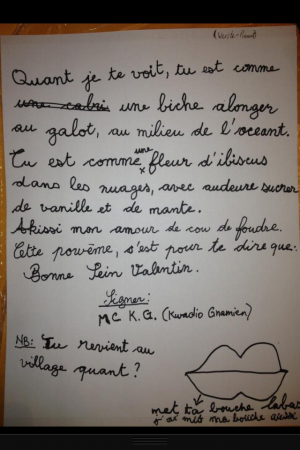 (Verte-Round)
Quant je te voit, tu est comme
une cabri une biche alonger
au galot, au milieu de l'oceant.
Tu est comme une fleur d'ibiscus
dans les nuages, avec audeure sucrer
de vanille et de mante.
Akissi mon amour de cou de foudre.
Cette powème, s'est pour te dire que:
Bonne Sein Valentin.
Signer:
MC K.G. (Kwadio Gnamien)
NB: Tu revient au
village quant?
met ta bouche labas
j'ai mis ma bouche aussi